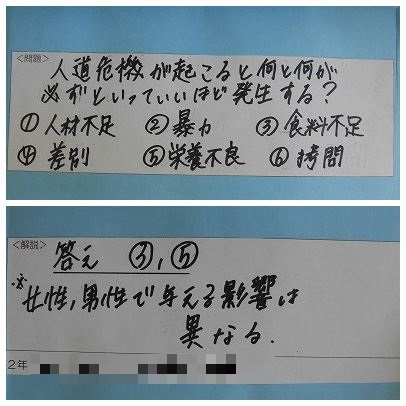 <問題>
人道危機が起こると何と何が
必ずといっていいほど発生する?
① 人材不足 ② 暴力 ③ 食料不足
④ 差別 ⑤ 栄養不良 ⑥ 拷問
<解説>
答え ③, ⑤
※女性, 男性で与える影響は
異なる.
2年